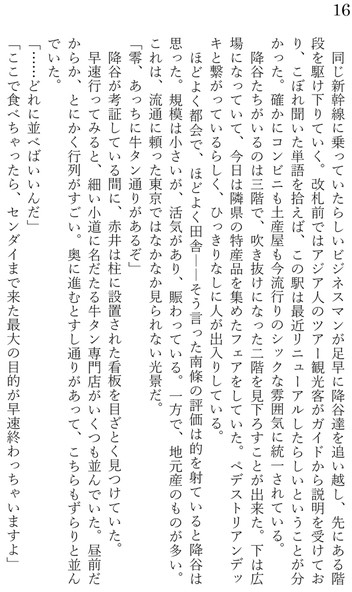 16
同じ新幹線に乗っていたらしいビジネスマンが足早に降谷達を追い越し、先にある階
段を駆け下りていく。改札前ではアジア人のツアー観光客がガイドから説明を受けてお
り、こぼれ聞いた単語を拾えば、この駅は最近リニューアルしたらしいということが分
かった。確かにコンビニも土産屋も今流行りのシックな雰囲気に統一されている。
降谷たちがいるのは三階で、吹き抜けになった二階を見下ろすことが出来た。下は広
場になっていて、今日は隣県の特産品を集めたフェアをしていた。ペデストリアンデッ
キと繋がっているらしく、ひっきりなしに人が出入りしている。
ほどよく都会で、ほどよく田舎――そう言った南條の評価は的を射ていると降谷は
思った。規模は小さいが、活気があり、賑わっている。一方で、地元産のものが多い。
これは、流通に頼った東京ではなかなか見られない光景だ。
「零、あっちに牛タン通りがあるぞ」
降谷が考証している間に、赤井は柱に設置された看板を目ざとく見つけていた。
早速行ってみると、細い小道に名だたる牛タン専門店がいくつも並んでいた。昼前だ
からか、とにかく行列がすごい。奥に進むとすし通りがあって、こちらもずらりと並ん
でいた。
「……どれに並べばいいんだ」
「ここで食べちゃったら、センダイまで来た最大の目的が早速終わっちゃいますよ」